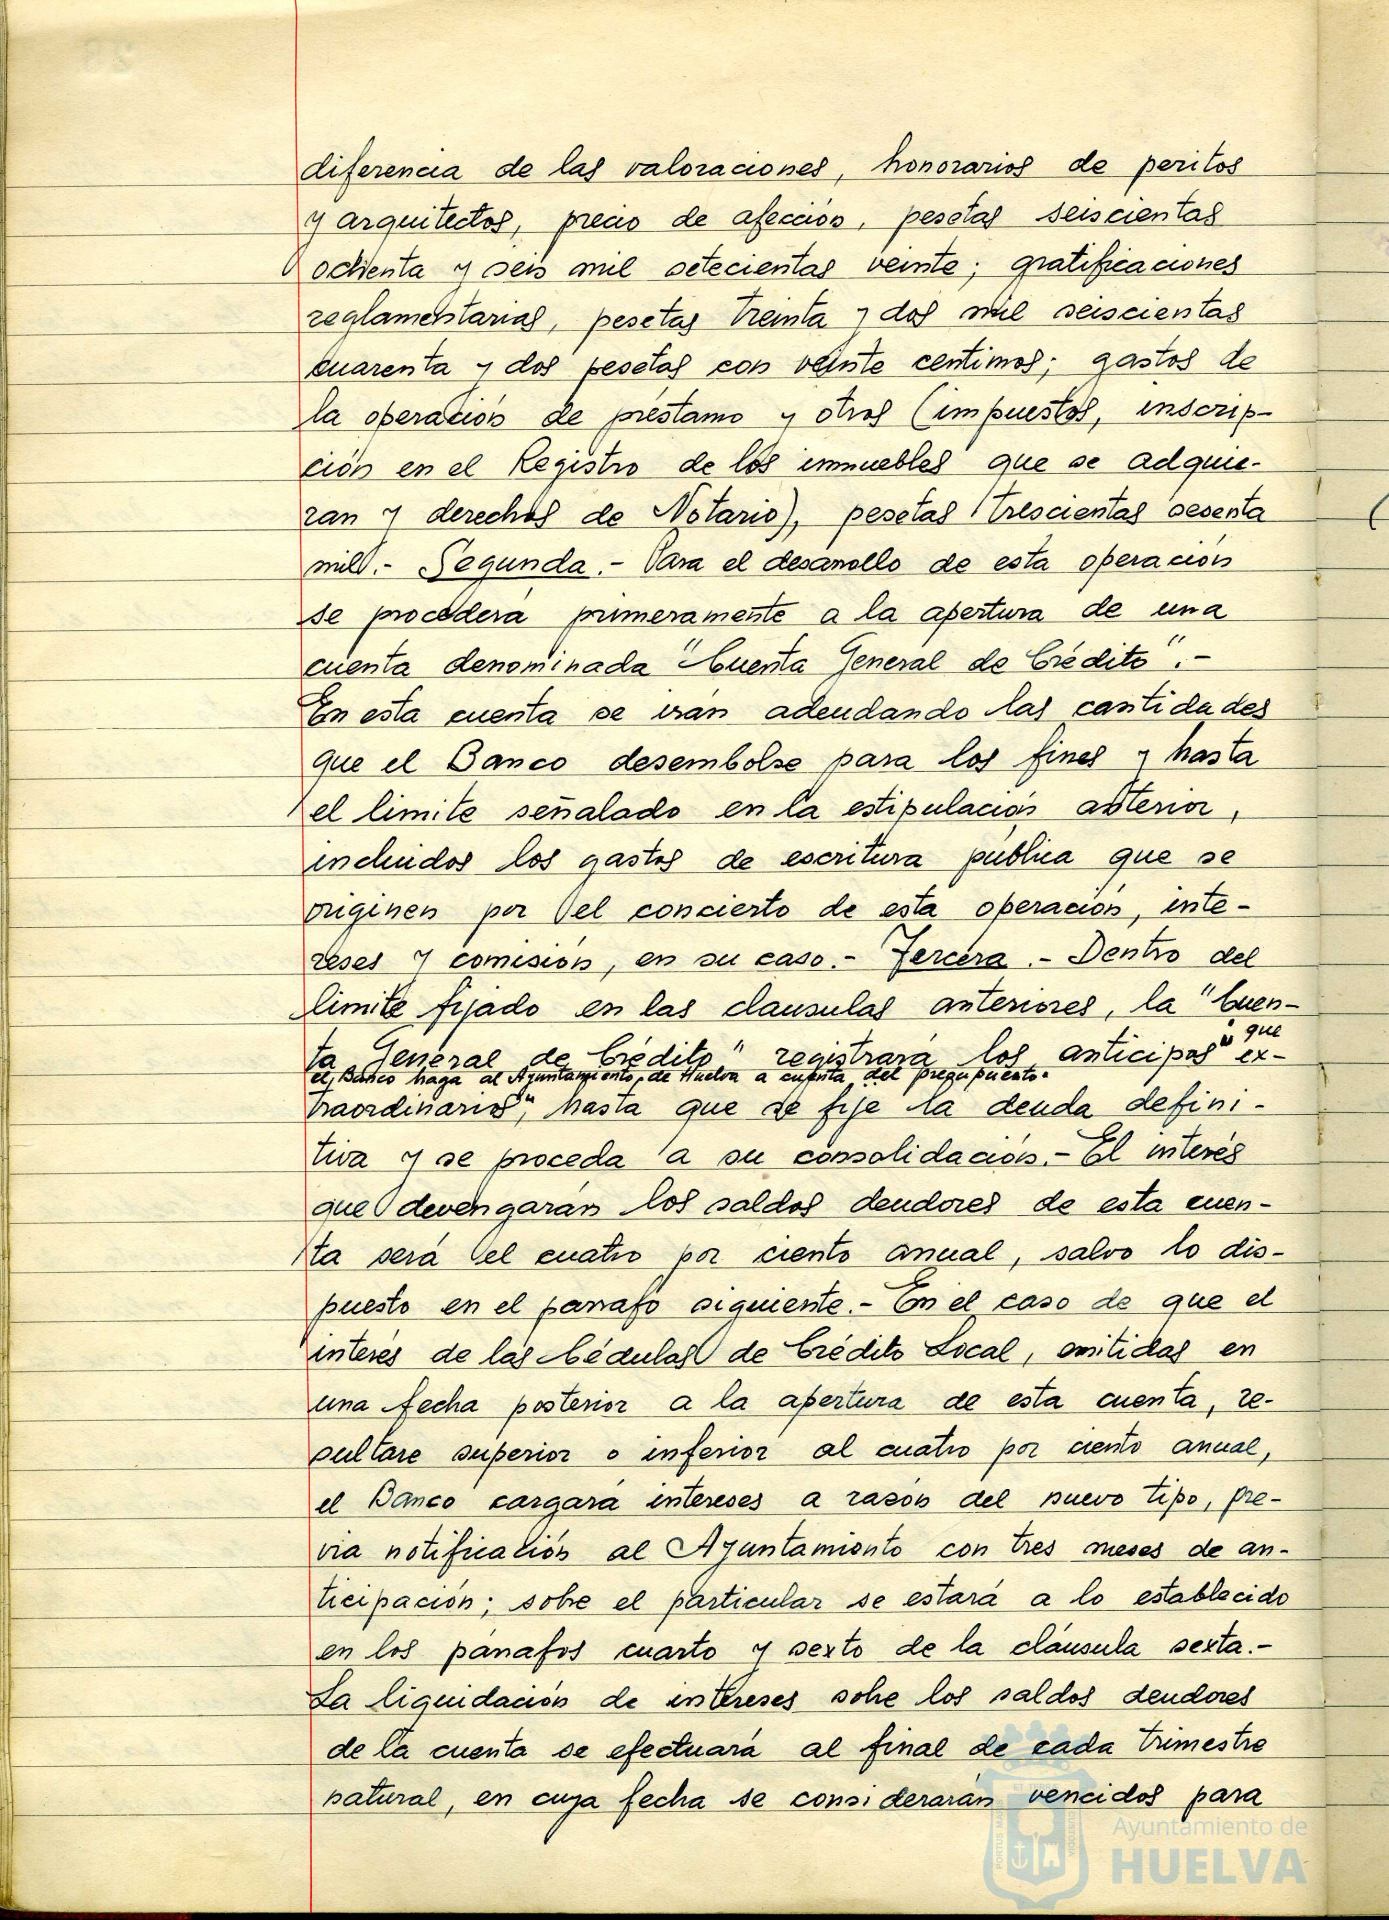 diferencia de las valoraciones, honorarios de peritos
y arquitectos, precio de afección, pesetas seiscientas
ochenta y seis mil setecientas veinte; gratificaciones
reglamentarias, pesetas treinta y dos mil seiscientas
cuarenta y dos pesetas con veinte centimos; gastos de
la operación de préstamo y otros (impuestos, inscrip-
ción en el Registro de los inmuebles que se adquie-
ran y derechos de Notario), pesetas trescientas sesenta
mil.- Segunda.- Para el desarrollo de esta operación
se procederá primeramente a la apertura de una
cuenta denominada "Cuenta General de Crédito".-
En esta cuenta se irán adeudando las cantidades
que el Banco desembolse para los fines y hasta
el limite señalado en la estipulación anterior,
incluidos los gastos de escritura pública que se
originen por el concierto de esta operación, inte-
reses y comisión, en su caso.- Tercera.- Dentro del
limite fijado en las clausulas anteriores, la "Cuen-
ta General de Crédito" registrará los anticipos" que ex-
el Banco haga al Ayuntamiento de Huelva a cuenta del presupuesto
traordinario", hasta que se fije la deuda defini-
tiva y se proceda a su consolidación.- El interés
que devengarán los saldos deudores de esta cuen-
ta será el cuatro por ciento anual, salvo lo dis-
puesto en el parrafo siguiente.- En el caso de que el
interés de las Cédulas de Crédito Local, emitidas en
una fecha posterior a la apertura de esta cuenta, re-
sultare superior o inferior al cuatro por ciento anual,
el Banco cargará intereses a razón del nuevo tipo, pre-
via notificación al Ayuntamiento con tres meses de an-
ticipación; sobre el particular se estará a lo establecido
en los párrafos cuarto y sexto de la cláusula sexta.-
La liquidación de intereses sobre los saldos deudores
de la cuenta se efectuará al final de cada trimestre
natural, en cuya fecha se considerarán vencidos para
Ayuntamiento de
HUELVA